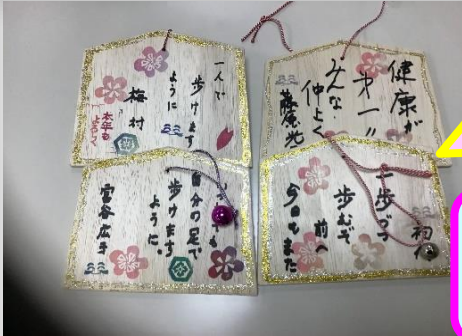 一人で
歩けます
ように
梅村
本年も
よろしく
健康が
才一!!
みんな
仲よく
藤原光
自分の足で
歩けます
ように。
宮谷広子
一歩づつ
歩むぞ
前へ
今日もまた